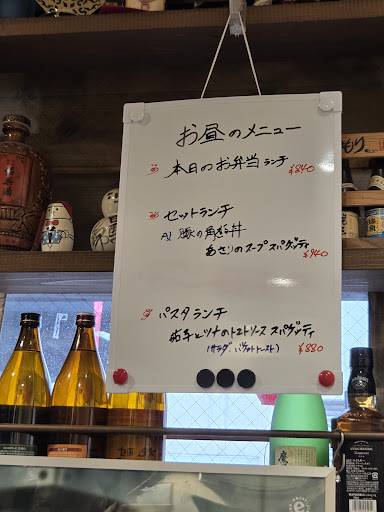 お昼のメニュー
本日のお弁当ランチ ¥840
セットランチ
A) 豚の角煮丼
あさりのスープスパゲッティ
¥940
パスタランチ
茄子とツナのトマトソース スパゲッティ
(サラダ バゲットトースト) ¥880